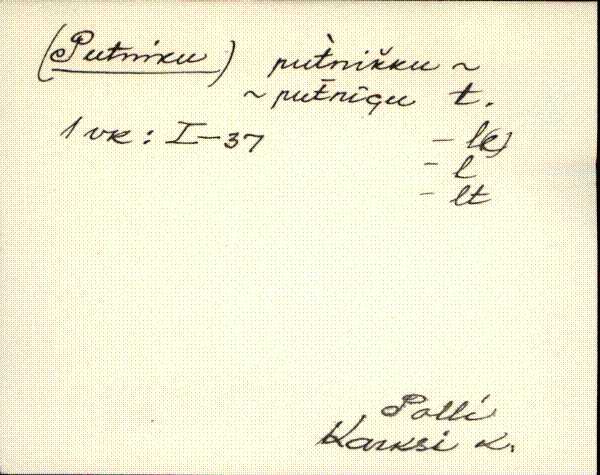 (Putniku) put̀nikku ~
~ put̄nigu t.
1 vk: I-37 - l(e)
- l
- lt
Polli
Karksi k.